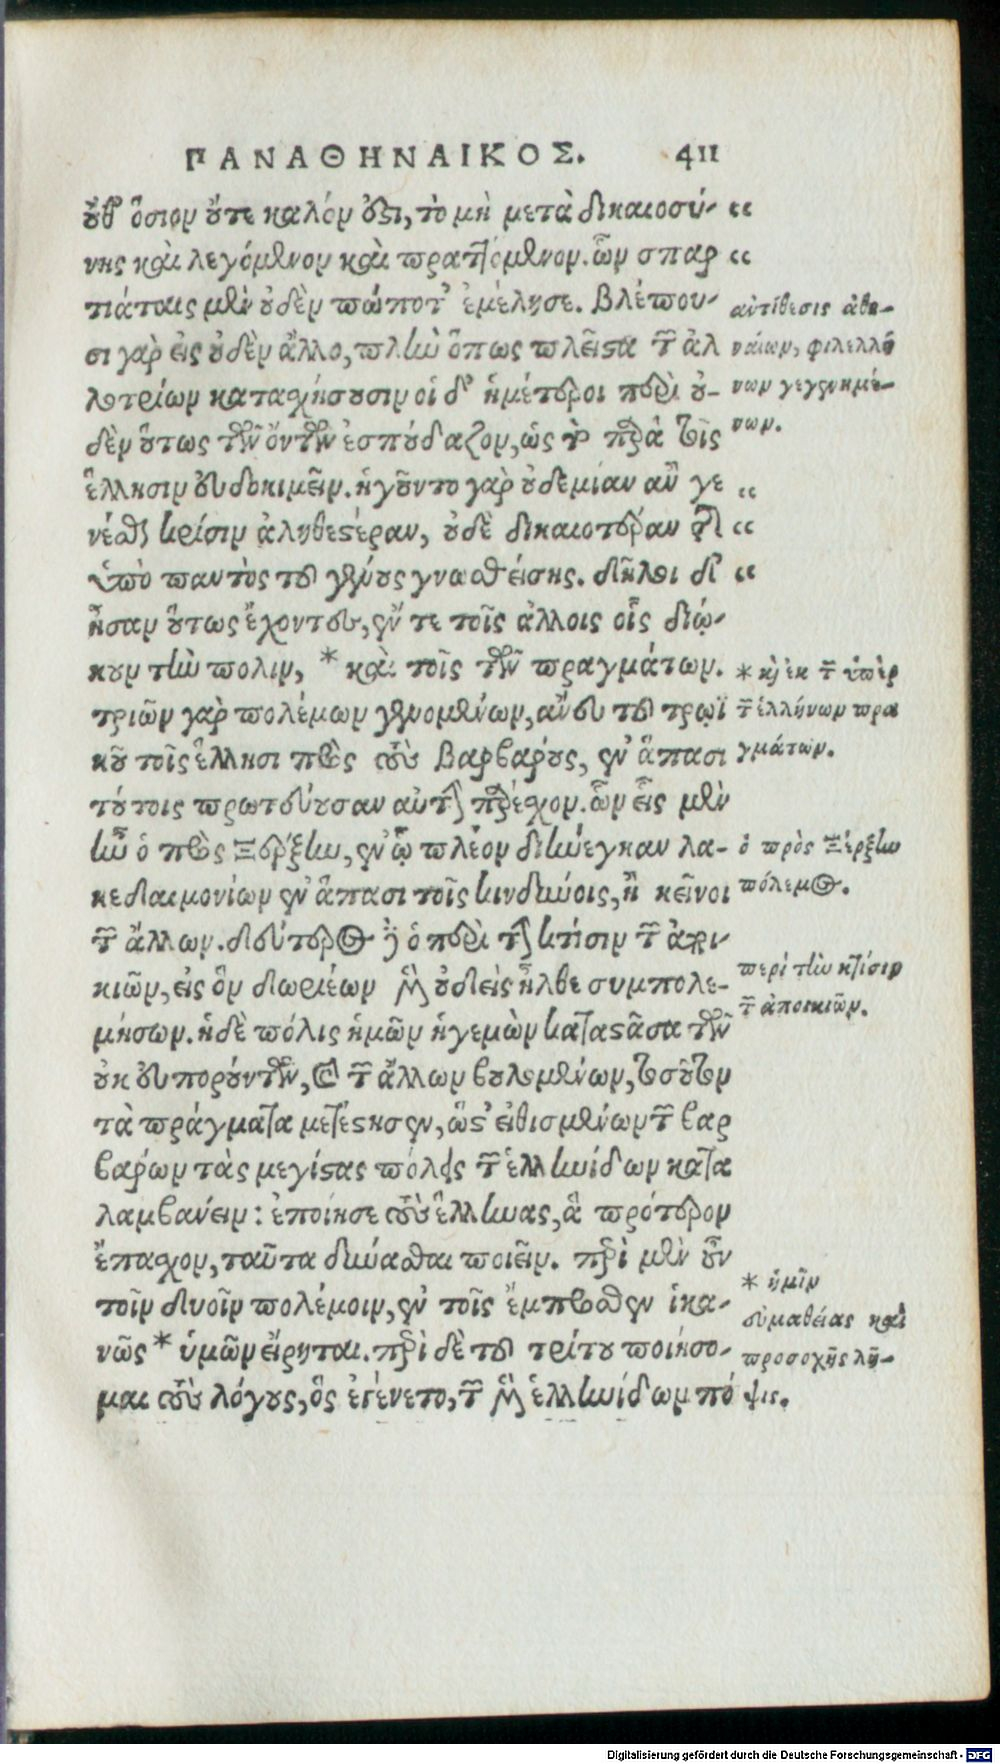 ΠΑΝΑΘΗΝΑΙΚΟΣ. 411
οὔθ᾽ ὅσιον οὔτε καλόν ἐστι, τὸ μὴ μετὰ δικαιοσύ- “
νης καὶ λεγόμενον καὶ πραττόμενον. ὧν σπαρ “
τιάταις μὲν οὐδὲν πώποτ᾽ ἐμέλησε. βλέπου-
σι γὰρ εἰς οὐδὲν ἄλλο, πλὴν ὅπως πλεῖστα τῶν ἀλ
λοτρίων κατασχήσουσιν οἱ δ᾽ ἡμέτεροι περὶ οὐ-
δὲν οὕτως τῶν ὄντων ἐσπούδαζον, ὡς τὸ παρὰ τοῖς
ἕλλησιν εὐδοκιμεῖν. ἡγοῦντο γὰρ οὐδεμίαν ἂν γε “
νέσθαι κρίσιν ἀληθεστέραν, οὐδὲ δικαιοτέραν τῆς “
ὑπὸ παντὸς τοῦ γένους γνωσθείσης. δῆλοι δ᾽ “
ἦσαν οὕτως ἔχοντες, ἔν τε τοῖς ἄλλοις οἷς διῴ-
κουν τὴν πόλιν, * καὶ τοῖς τῶν πραγμάτων.
τριῶν γὰρ πολέμων γενομένων, ἄνευ τοῦ τρωϊ
κοῦ τοῖς ἕλλησι πρὸς τοὺς βαρβάρους, ἐν ἅπασι
τούτοις πρωτεύουσαν αὐτὴν παρέχον. ὧν εἷς μὲν
ἦν ὁ πρὸς Ξέρξην, ἐν ᾧ πλέον διήνεγκαν λα-
κεδαιμονίων ἐν ἅπασι τοῖς κινδύνοις, ἢ κεῖνοι
τῶν ἄλλων. δεύτερος δ᾽ ὁ περὶ τὴν κτίσιν τῶν ἀποι-
κιῶν, εἰς ὃν δωριέων μὲν οὐδεὶς ἦλθε συμπολε-
μήσων. ἡ δὲ πόλις ἡμῶν ἡγεμὼν καταστᾶσα τῶν
οὐκ εὐπορούντων, καὶ τῶν ἄλλων βουλομένων, τοσοῦτον
τὰ πράγματα μετέστησεν, ὥστ᾽ εἰθισμένων τῶν βαρ
βάρων τὰς μεγίστας πόλεις τῶν ἑλληνίδων κατα
λαμβάνειν: ἐποίησε τοὺς ἕλληνας, ἃ πρότερον
ἔπασχον, ταῦτα δύνασθαι ποιεῖν. περὶ μὲν οὖν
τοῖν δυοῖν πολέμοιν, ἐν τοῖς ἔμπροσθεν ἱκα-
νῶς * ὑμῶν εἴρηται. περὶ δὲ τοῦ τρίτου ποιήσο-
μαι τοὺς λόγους, ὃς ἐγένετο, τῶν μὲν ἑλληνίδων πό
ἀντίθεσις ἀθη-
ναίων, φιλελλή
νων γεγενημέ-
νων.
* κ̀ ἐκ τῶν ὑπὲρ
τῶν ἑλλήνων πρα
γμάτων.
ὁ πρὸς Ξέρξην
πόλεμος.
περὶ τὴν κτίσιν
τῶν ἀποικιῶν.
* ἡμῖν
εὐμαθείας καὶ
προσοχῆς λῆ-
ψις.
Digitalisierung gefördert durch die Deutsche Forschungsgemeinschaft - DFG